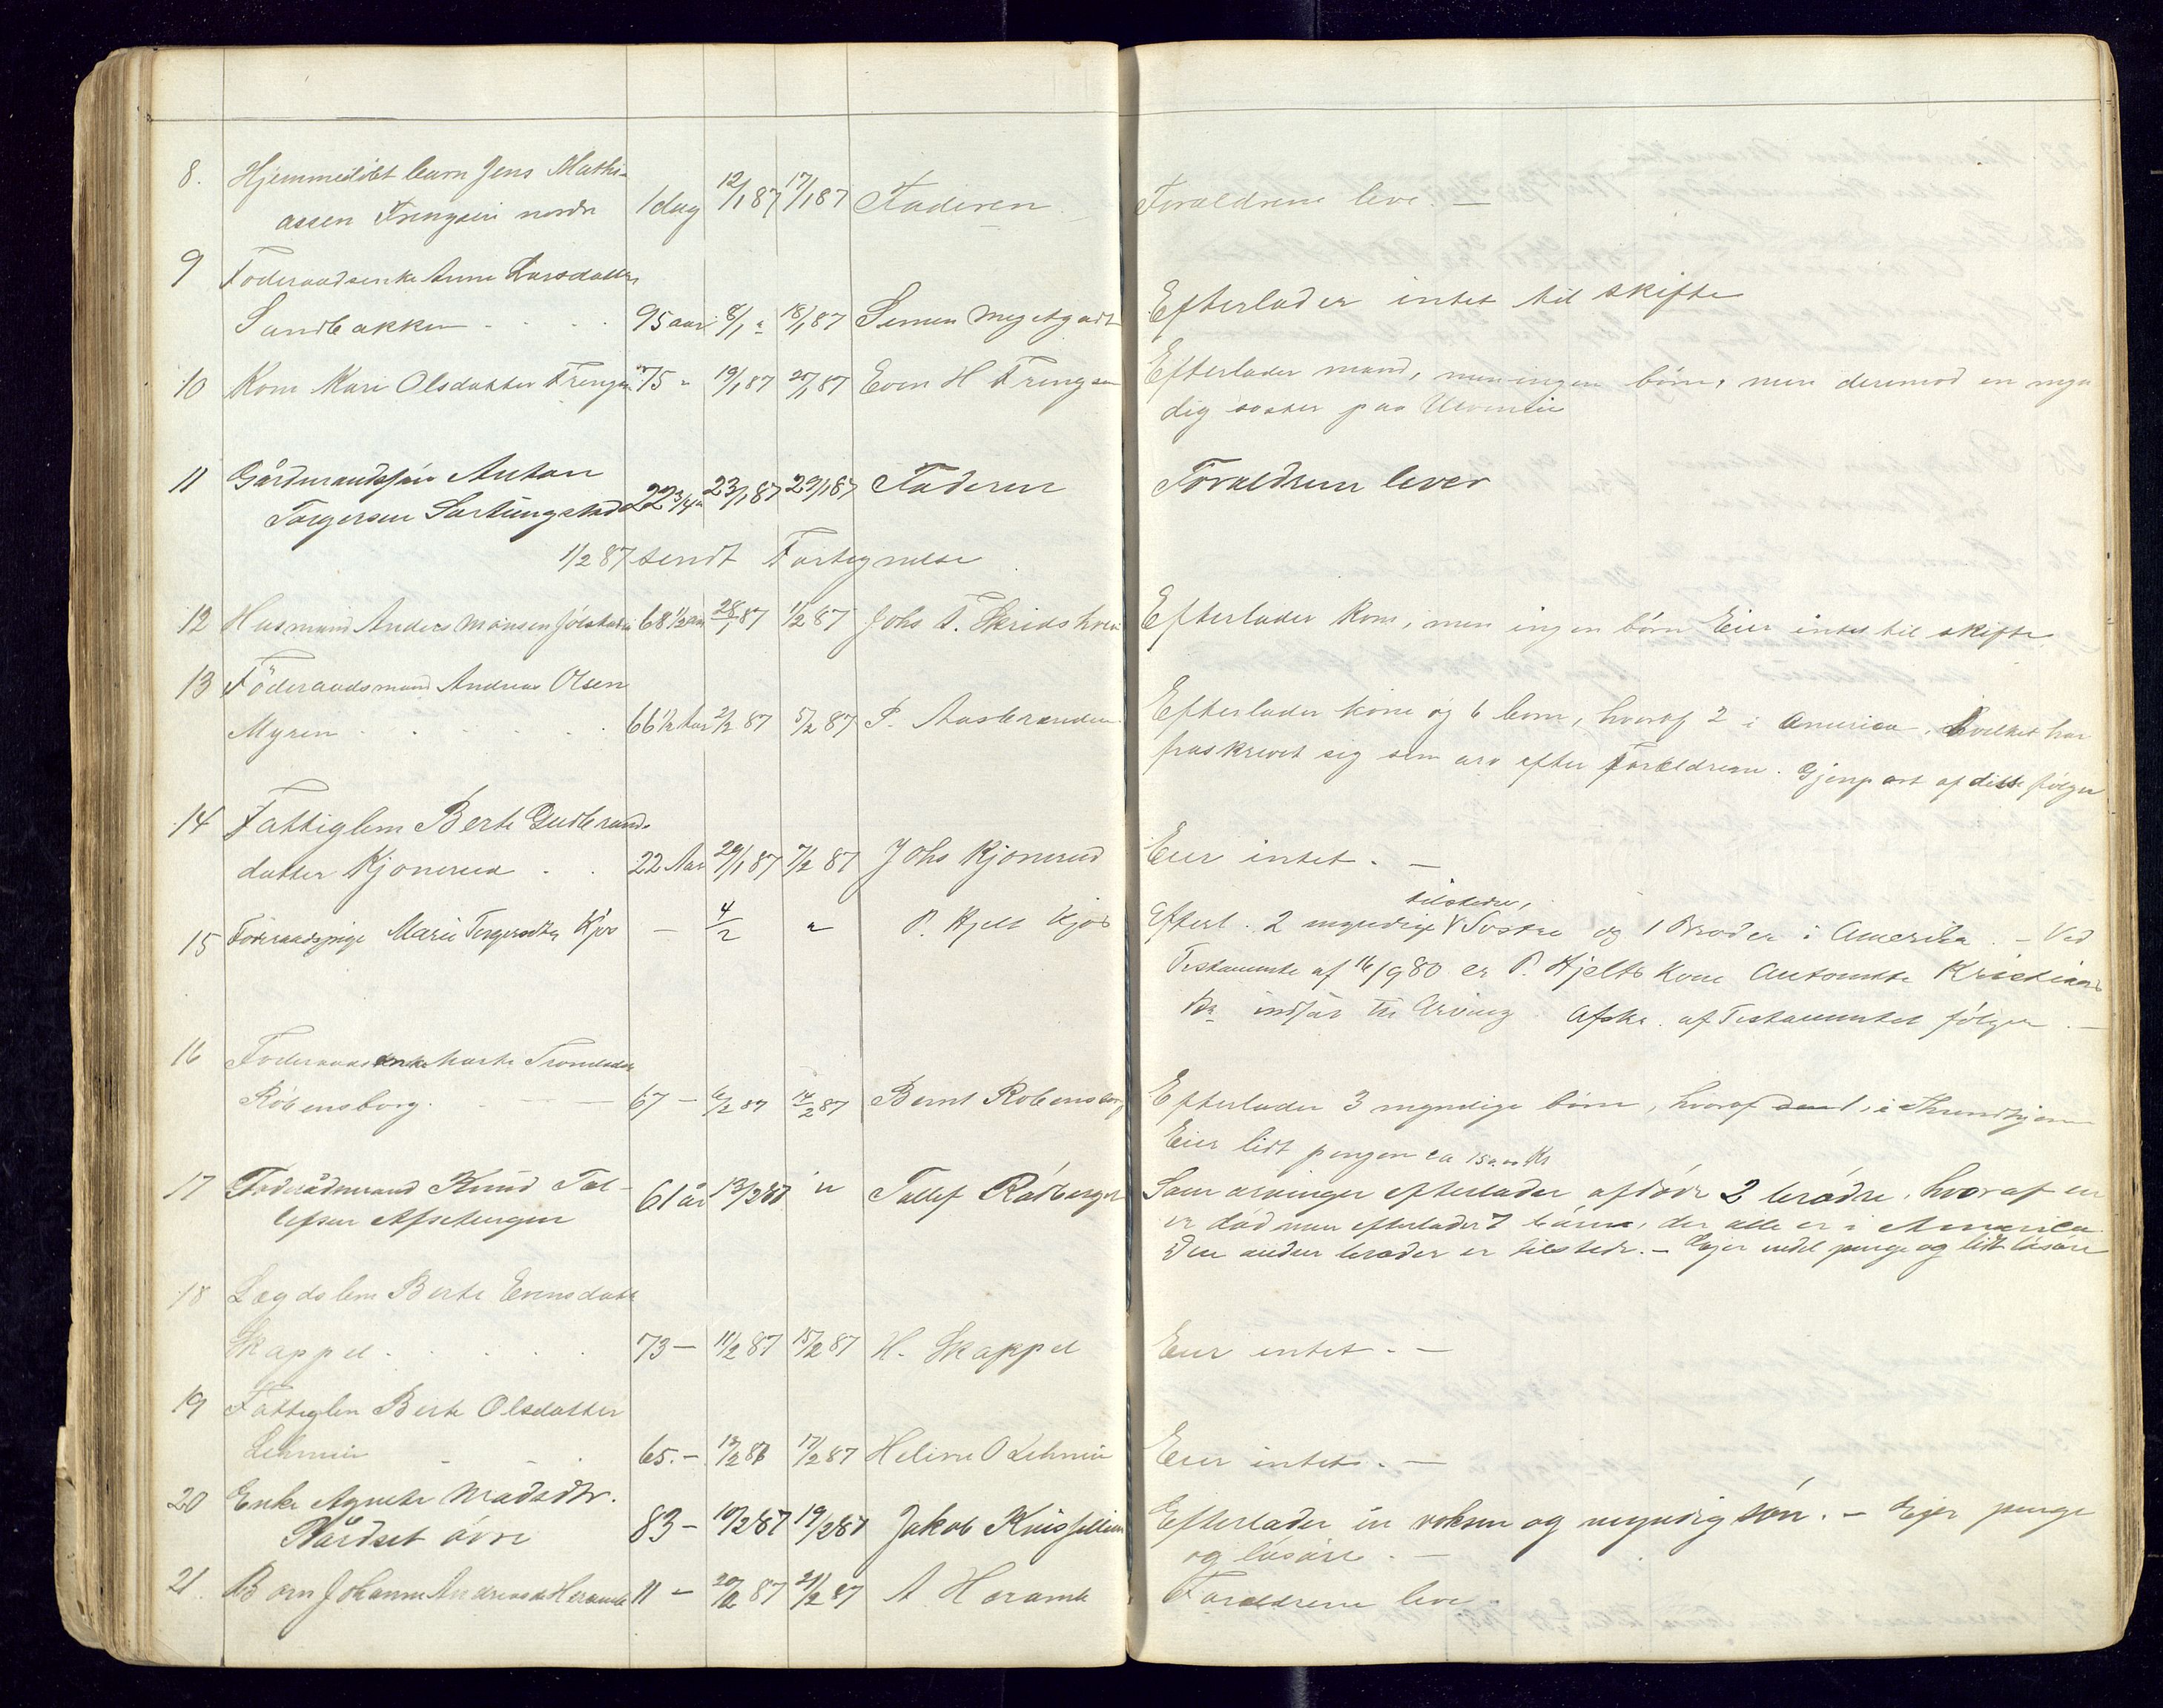 8. Hjemmedøbt barn Jens Mathi-
assen Frengsein nordre 1 dag 12/1 87 17/1 87 Faderen Forældrene leve. —
9 Føderaadsenke Anne Larsdatter
Sandbakken . . . . 95 aar 8/1 " 18/1 87 Simen Megetgodt Efterlader intet til skifte
10 Kone Kari Olsdatter Frengsn 75 " 19/1 87 25/1 87 Even H Frengsen Efterlader mand, men ingen børn, men derimod en myn
dig søster paa
11 Gårdmandssøn Anton
Torgersen Sortungstad 22 3/4 " 23/1 87 29/1 87 Faderen Forældrene lever
1/2 87 sendt Fortegnelse
12 Husmand Anders Monsen Jølstadei 68 1/2 aar 28/1 87 1/2 87 Johs A. Skridshoel Efterlader Kone, men ingen børn Eier intet til skifte.
13 Föderaadsmand Andreas Olsen
Myren . . . . . . 66 1/2 Aar 2/2 87 5/2 87 P. Aasbrænden Efterlader kone og 6 børn, hvoraf 2 i America, hvilket har
fraskrevet sig sem arv efter Forældrene. Gjenpart af dette følger
14 Fattiglem Berte Gudbrands
datter Kjonerud . . 22 Aar 29/1 87 7/2 87 Johs Kjonerud Eier intet. —
15 Föderaadspige Marie Torgersdtr Kjos — 4/2 " P. Hjelt Kjos Efterl. 2 myndige V Søstre og 1 Broder i Amerika. — Ved
tilstede,
Testamente af 16/9 80 er P. Hjelts Kone Antonette Kristians
Dr indsat til Arving. Afskr. af Testamentet følger. —
16 Føderaadsenke Marte Tromdsdtr
Röbensborg. — — 67 — 6/2 87 14/2 87 Bernt Robensborg Efterlader 3 myndige börn, hvoraf den 1, i Throndhjem
Eier lidt penger ca 150.00 Kr
17 Föderådsmand Knud Tol-
lefsen Afsetengen 61 år 13/2 87 " Tollef Rödbergen Som arvinger efterlader afdöde 2 brödre, hvoraf en
er död men efterlader 7 börn, der alle er i Amerika
Den anden broder er tilstede. — Ejer endel penge og lidt lösöre
18 Lægdslem Berte Evensdatt
Skappel . . . . . 73 — 11/2 87 15/2 87 H. Skappel Eier intet. —
19 Fattiglem Berte Olsdatter
Lehnnie — — . 65. — 13/2 87 17/2 87 Heline O Lehnnie Eier intet. —
20 Enke Agnete Madsdtr.
Hårdset övre 83 — 10/2 87 19/2 87 Jakob Efterlader en voksen og myndig sön. — Ejer penge
og lösöre. —
21. Barn Johanne Andreasdtr Heramb 11 — 20/2 87 21/2 87 A Heramb Forældrene leve.